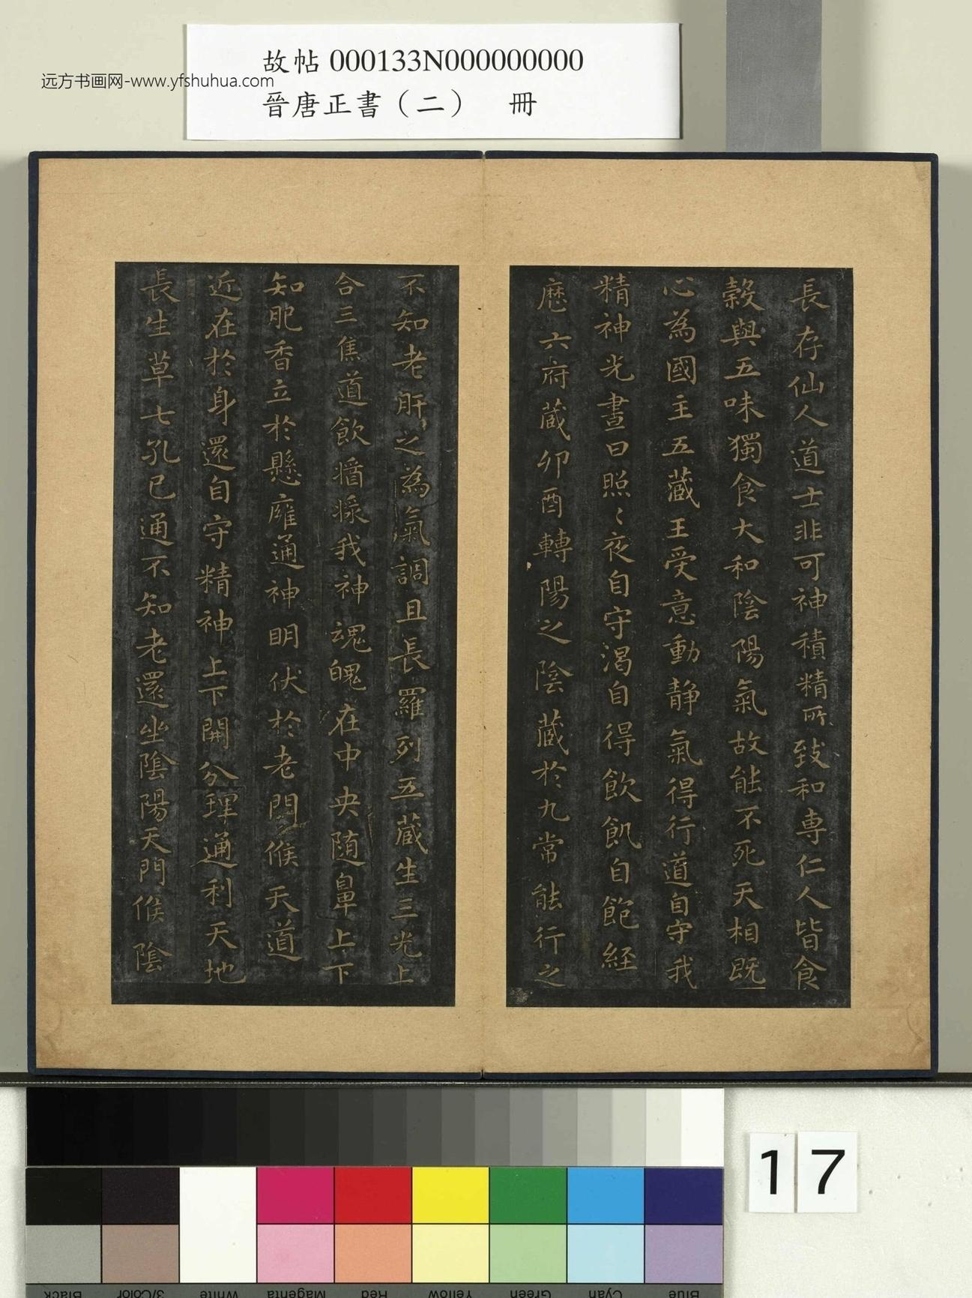 故帖 000133N000000000
远方书画网-www.yfshuhua.com
晉唐正書（二） 冊
長存仙人道士非可神積精所致和專仁人皆食
穀與五味獨食大和陰陽氣故能不死天相既
心為國主五藏王受意動靜氣得行道自守我
精神光晝日照〻夜自守渴自得飲飢自飽經
歷六府藏卯酉轉陽之陰藏於九常能行之
不知老肝之為氣調且長羅列五藏生三光上
合三焦道飲醬漿我神魂魄在中央随鼻上下
知肥香立於懸雍通神明伏於老門候天道
近在於身還自守精神上下開分理通利天地
長生草七孔已通不知老還坐陰陽天門候陰
17
Black
3/Color
White
Magenta
Red
Yellow
Green
Cyan
Blue